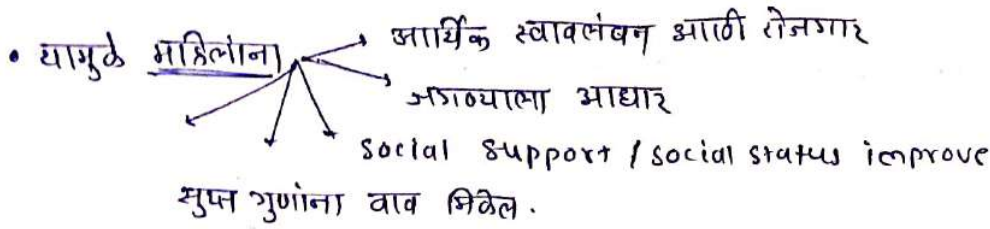 • यामुळे महिलांना
आर्थिक स्वावलंबन आणी रोजगार
जगण्याला आधार
social support / social status improve
सुप्त गुणांना वाव मिळेल.